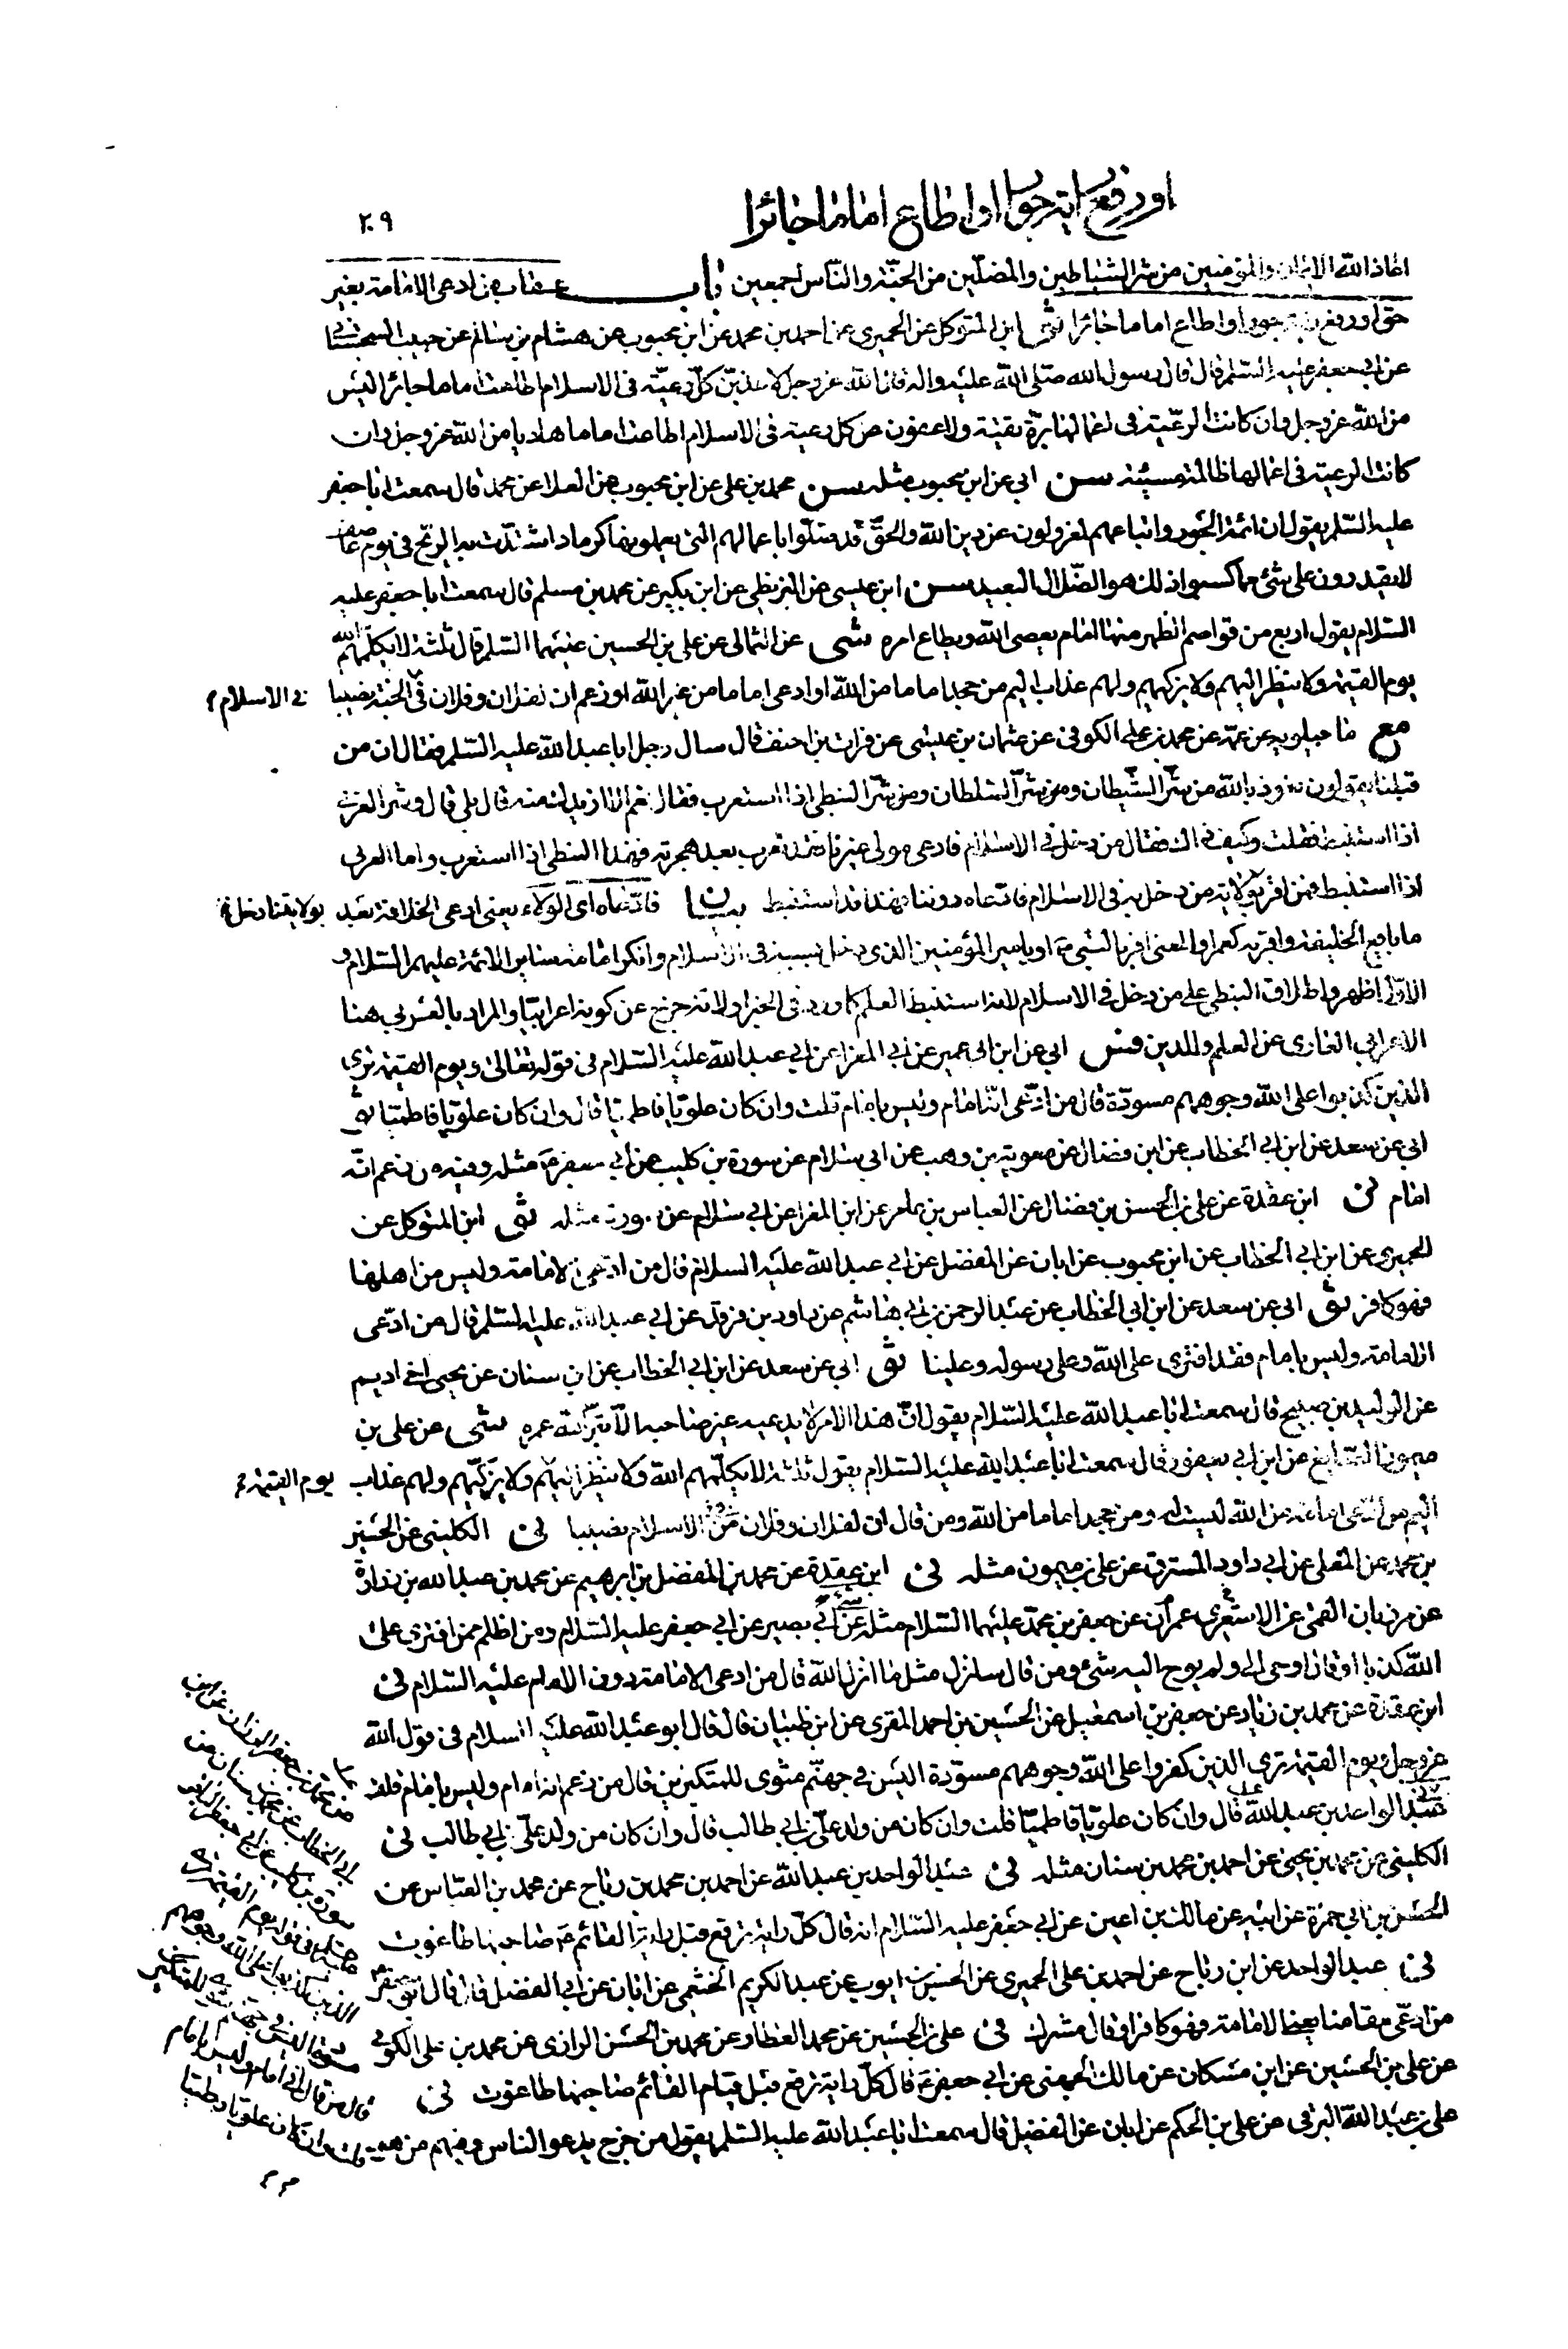 او رفع راية جور او اطاع اماما جائرا
٢٠٩
اعاذنا الله الايمان والمؤمنين من شر الشياطين والمضلين من الجنة والناس اجمعين باب عقاب من ادعى الامامة بغير
حق او رفع راية جور او اطاع اماما جائرا ابن المتوكل عن الحميري عن احمد بن محمد عن ابن محبوب عن هشام بن سالم عن حبيب السجستاني
عن ابي جعفر عليه السلم قال قال رسول الله صلى الله عليه واله قال الله عز وجل لاعذبن كل رعية في الاسلام اطاعت اماما جائرا ليس
من الله عز وجل وان كانت الرعية في اعمالها برة تقية ولاعفون عن كل رعية في الاسلام اطاعت اماما هاديا من الله عز وجل وان
كانت الرعية في اعمالها ظالمة مسيئة سن ابي عن ابن محبوب مثله سن محمد بن علي عن ابن محبوب عن العلا عن محمد قال سمعت ابا جعفر
عليه السلم يقول ان ائمة الجور واتباعهم لمعزولون عن دين الله والحق قد ضلوا باعمالهم التي يعملونها كرماد اشتدت به الريح في يوم عاصف
لا يقدرون على شئ مما كسبوا ذلك هو الضلال البعيد سن ابن عيسى عن البزنطي عن ابن بكير عن محمد بن مسلم قال سمعت ابا جعفر عليه
السلام يقول اربع من قواصم الظهر منها امام يعصى الله ويطاع امره شي عن الثمالي عن علي بن الحسين عليهما السلم قال ثلثة لا يكلمهم الله
يوم القيمة ولا ينظر اليهم ولا يزكيهم ولهم عذاب اليم من جحد اماما من الله او ادعى اماما من غير الله او زعم ان لفلان وفلان في الجنة نصيبا في الاسلام
مع ماجيلويه عن عمه عن محمد بن علي الكوفي عن عثمان بن عيسى عن فرات بن احنف قال سال رجل ابا عبد الله عليه السلم فقال ان من
قبلنا يقولون نعوذ بالله من شر الشيطان ومن شر السلطان ومن شر النبطي اذا استعرب فقال نعم الا ازيدك منه قال بلى قال ومن شر العربي
اذا استنبط فقلت وكيف ذاك فقال من دخل في الاسلام فادعى مولى غيرنا فقد تعرب بعد هجرته فهذا النبطي اذا استعرب واما العربي
اذا استنبط فمن اقر بولاية من دخل به في الاسلام فادعاه دوننا فهذا قد استنبط بيان فادعاه اى الولاء يعني ادعى الخلافة بعد
ما بايع الخليفة واقر به كعمر او المعنى اقر بالنبي او بامير المؤمنين الذي دخل بسببه في الاسلام وانكر امامة سائر الائمة عليهم السلام و
الاول اظهر واطلاق النبطي على من دخل في الاسلام لانه استنبط العلم كما ورد في الخبر ولانه خرج عن كونه اعرابيا والمراد بالعربي هنا
الاعرابي العاري عن العلم والدين فس ابي عن ابن ابي عمير عن ابي المغرا عن ابي عبد الله عليه السلام في قوله تعالى ويوم القيمة ترى
الذين كذبوا على الله وجوههم مسودة قال من ادعى انه امام وليس بامام قلت وان كان علويا فاطميا قال وان كان علويا فاطميا ثو
ابي عن سعد عن ابن ابي الخطاب عن ابن فضال عن معوية بن وهب عن ابي سلام عن سورة بن كليب عن ابي جعفر مثله وفيه من زعم انه
امام ني ابن عقدة عن علي بن الحسن بن فضال عن العباس بن عامر عن ابي المغرا عن ابي سلام عن سورة مثله ثو ابن المتوكل عن
الحميري عن ابن ابي الخطاب عن ابن محبوب عن ابان عن المفضل عن ابي عبد الله عليه السلام قال من ادعى الامامة وليس من اهلها
فهو كافر ثو ابي عن سعد عن ابن ابي الخطاب عن عبد الرحمن بن ابي هاشم عن داود بن فرقد عن ابي عبد الله عليه السلم قال من ادعى
الامامة وليس بامام فقد افترى على الله وعلى رسوله وعلينا ثو ابي عن سعد عن ابن ابي الخطاب عن ابن سنان عن يحيى اخي اديم
عن الوليد بن صبيح قال سمعت ابا عبد الله عليه السلام يقول ان هذا الامر لا يدعيه غير صاحبه الا بتر الله عمره شي عن علي بن
ميمون الصايغ عن ابن ابي يعفور قال سمعت ابا عبد الله عليه السلام يقول ثلثة لا يكلمهم الله ولا ينظر اليهم ولا يزكيهم ولهم عذاب يوم القيمة
اليم من ادعى امامة من الله ليست له ومن جحد اماما من الله ومن قال ان لفلان وفلان في الاسلام نصيبا ني الكليني عن الحسين
بن محمد عن المعلى عن ابي داود المسترق عن علي بن ميمون مثله ني ابن عقدة عن محمد بن المفضل بن ابرهيم عن محمد بن عبد الله بن زرارة
عن مرزبان القمي عن الاشعري عمران عن جعفر بن محمد عليهما السلام مثله شي عن ابي بصير عن ابي جعفر عليه السلام ومن اظلم ممن افترى على
الله كذبا او قال اوحى الي ولم يوح اليه شئ ومن قال سانزل مثل ما انزل الله قال من ادعى الامامة دون الامام عليه السلام ني
ابن عقدة عن محمد بن زياد عن جعفر بن اسمعيل عن الحسين بن احمد المقري عن ابن ظبيان قال قال ابو عبد الله عليه السلام في قول الله
عز وجل ويوم القيمة ترى الذين كفروا على الله وجوههم مسودة اليس في جهنم مثوى للمتكبرين قال من زعم انه امام وليس بامام قلت
عبد الواحد بن عبد الله قال وان كان علويا فاطميا قلت وان كان من ولد علي بن ابي طالب قال وان كان من ولد علي بن ابي طالب ني
الكليني عن محمد بن يحيى عن احمد بن محمد بن سنان مثله ني عبد الواحد بن عبد الله عن احمد بن محمد بن رباح عن محمد بن العباس عن
الحسن بن ابي حمزة عن ابيه عن مالك بن اعين عن ابي جعفر عليه السلام انه قال كل راية ترفع قبل راية القائم صاحبها طاغوت
ني عبد الواحد عن ابن رباح عن احمد بن علي الحميري عن الحسن بن ايوب عن عبد الكريم الخثعمي عن ابان عن ابي الفضل قال قال ابو جعفر
من ادعى مقامنا يعني الامامة فهو كافر او قال مشرك ني علي بن الحسين عن محمد العطار عن محمد بن الحسن الرازي عن محمد بن علي الكوفي
عن علي بن الحسين عن ابن مسكان عن مالك الجهني عن ابي جعفر قال كل راية ترفع قبل قيام القائم صاحبها طاغوت ني
علي بن عبد الله البرقي عن علي بن الحكم عن ابان عن الفضيل قال سمعت ابا عبد الله عليه السلم يقول من خرج يدعو الناس وفيهم من هو
بولايتنا دخل
ابي الخطاب عن محمد بن سنان عن
سورة بن كليب عن ابي جعفر
في قوله يوم القيمة ترى
الذين كذبوا على الله وجوههم
مسودة اليس في جهنم مثوى للمتكبرين
قال من قال اني امام وليس بامام
قلت وان كان علويا فاطميا